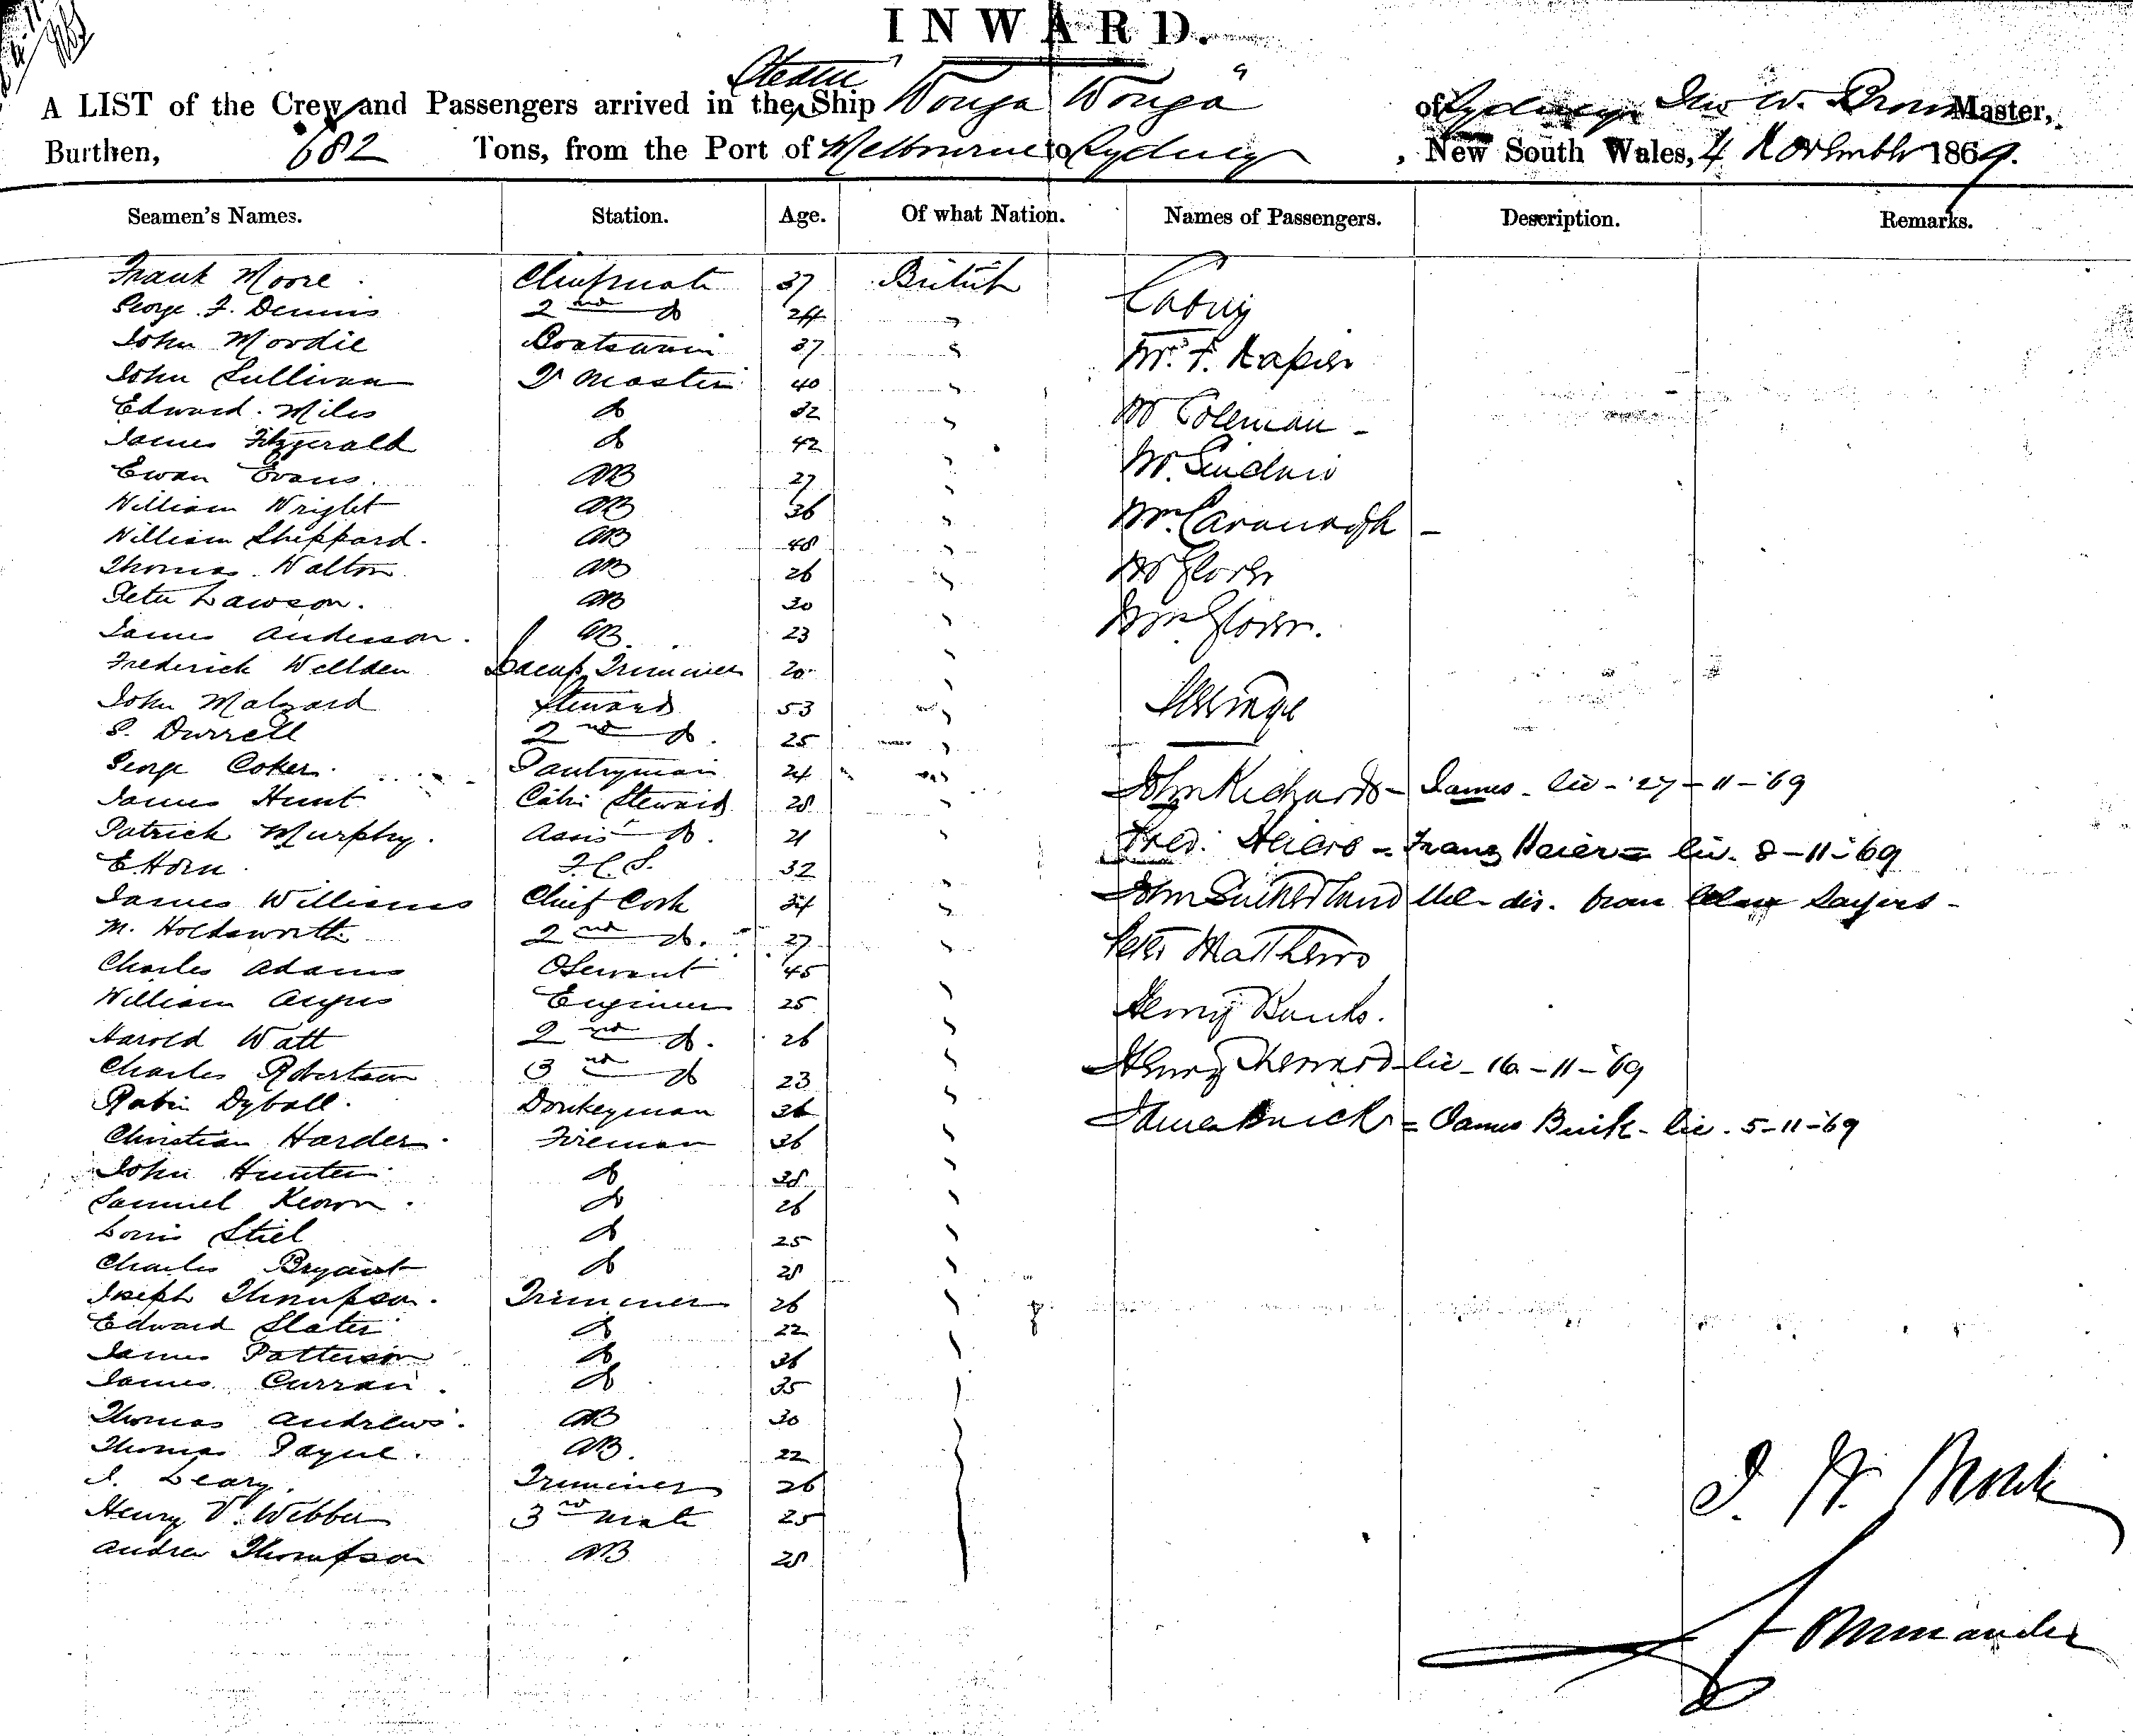 INWARD.
A LIST of the Crew and Passengers arrived in the Steam Ship "Wonga Wonga" of Sydney, W. Master,
Burthen, 682 Tons, from the Port of Melbourne to Sydney, New South Wales, 4 November 1869.
Seamen's Names. Station. Age. Of what Nation. Names of Passengers. Description. Remarks.
Frank Moore Chief mate 37 British
George F. Dennis 2nd do 24 "
John Mordie Boatswain 37 "
John Sullivan Qr Master 40 "
Edward Miles do 32 "
James Fitzgerald do 42 "
Ewan Evans AB 27 "
William Wright AB 36 "
William Sheppard AB 48 "
Thomas Walton AB 26 "
Peter Lawson AB 30 "
James Anderson AB 23 "
Frederick Wellden Trimmer 20 "
John Malzard Steward 53 "
S. Durrell 2nd do 25 "
George Coker Pantryman 24 "
James Hunt Cabin Steward 28 "
Patrick Murphy Assist do 21 "
E Horn F.C.S. 32 "
James Williams Chief Cook 34 "
M. Holdsworth 2nd do 27 "
Charles Adams 45 "
William Angus Engineer 25 "
Harold Watt 2nd do 26 "
Charles Robertson 3rd do 23 "
Robin Dyball Donkeyman 36 "
Christian Harder Fireman 36 "
John Hunter do 38 "
Samuel Keown do 26 "
Louis Stiel do 25 "
Charles Bryant do 28 "
Joseph Thompson Trimmer 26 "
Edward Slater do 22 "
James Patterson do 36 "
James Curran do 35
Thomas Andrews AB 30
Thomas Payne AB 22
J. Leary Trimmer 26
Henry V. Webber 3rd mate 25
Andrew Thompson AB 28
Cabin
Mr. F. Napier
Mr Coleman
Mr. Sinclair
Mrs Cavanagh
Mr Glover
Mrs Glover.
Steerage
John Richards - James - liv - 27-11-'69
Fred. = Franz Haier = liv. 8-11-'69
John Sutherland dis. from Sayers -
Peter Matthews
Henry Banks.
Henry liv - 16-11-'69
James Buick = James Buik - liv. 5-11-'69
Commander